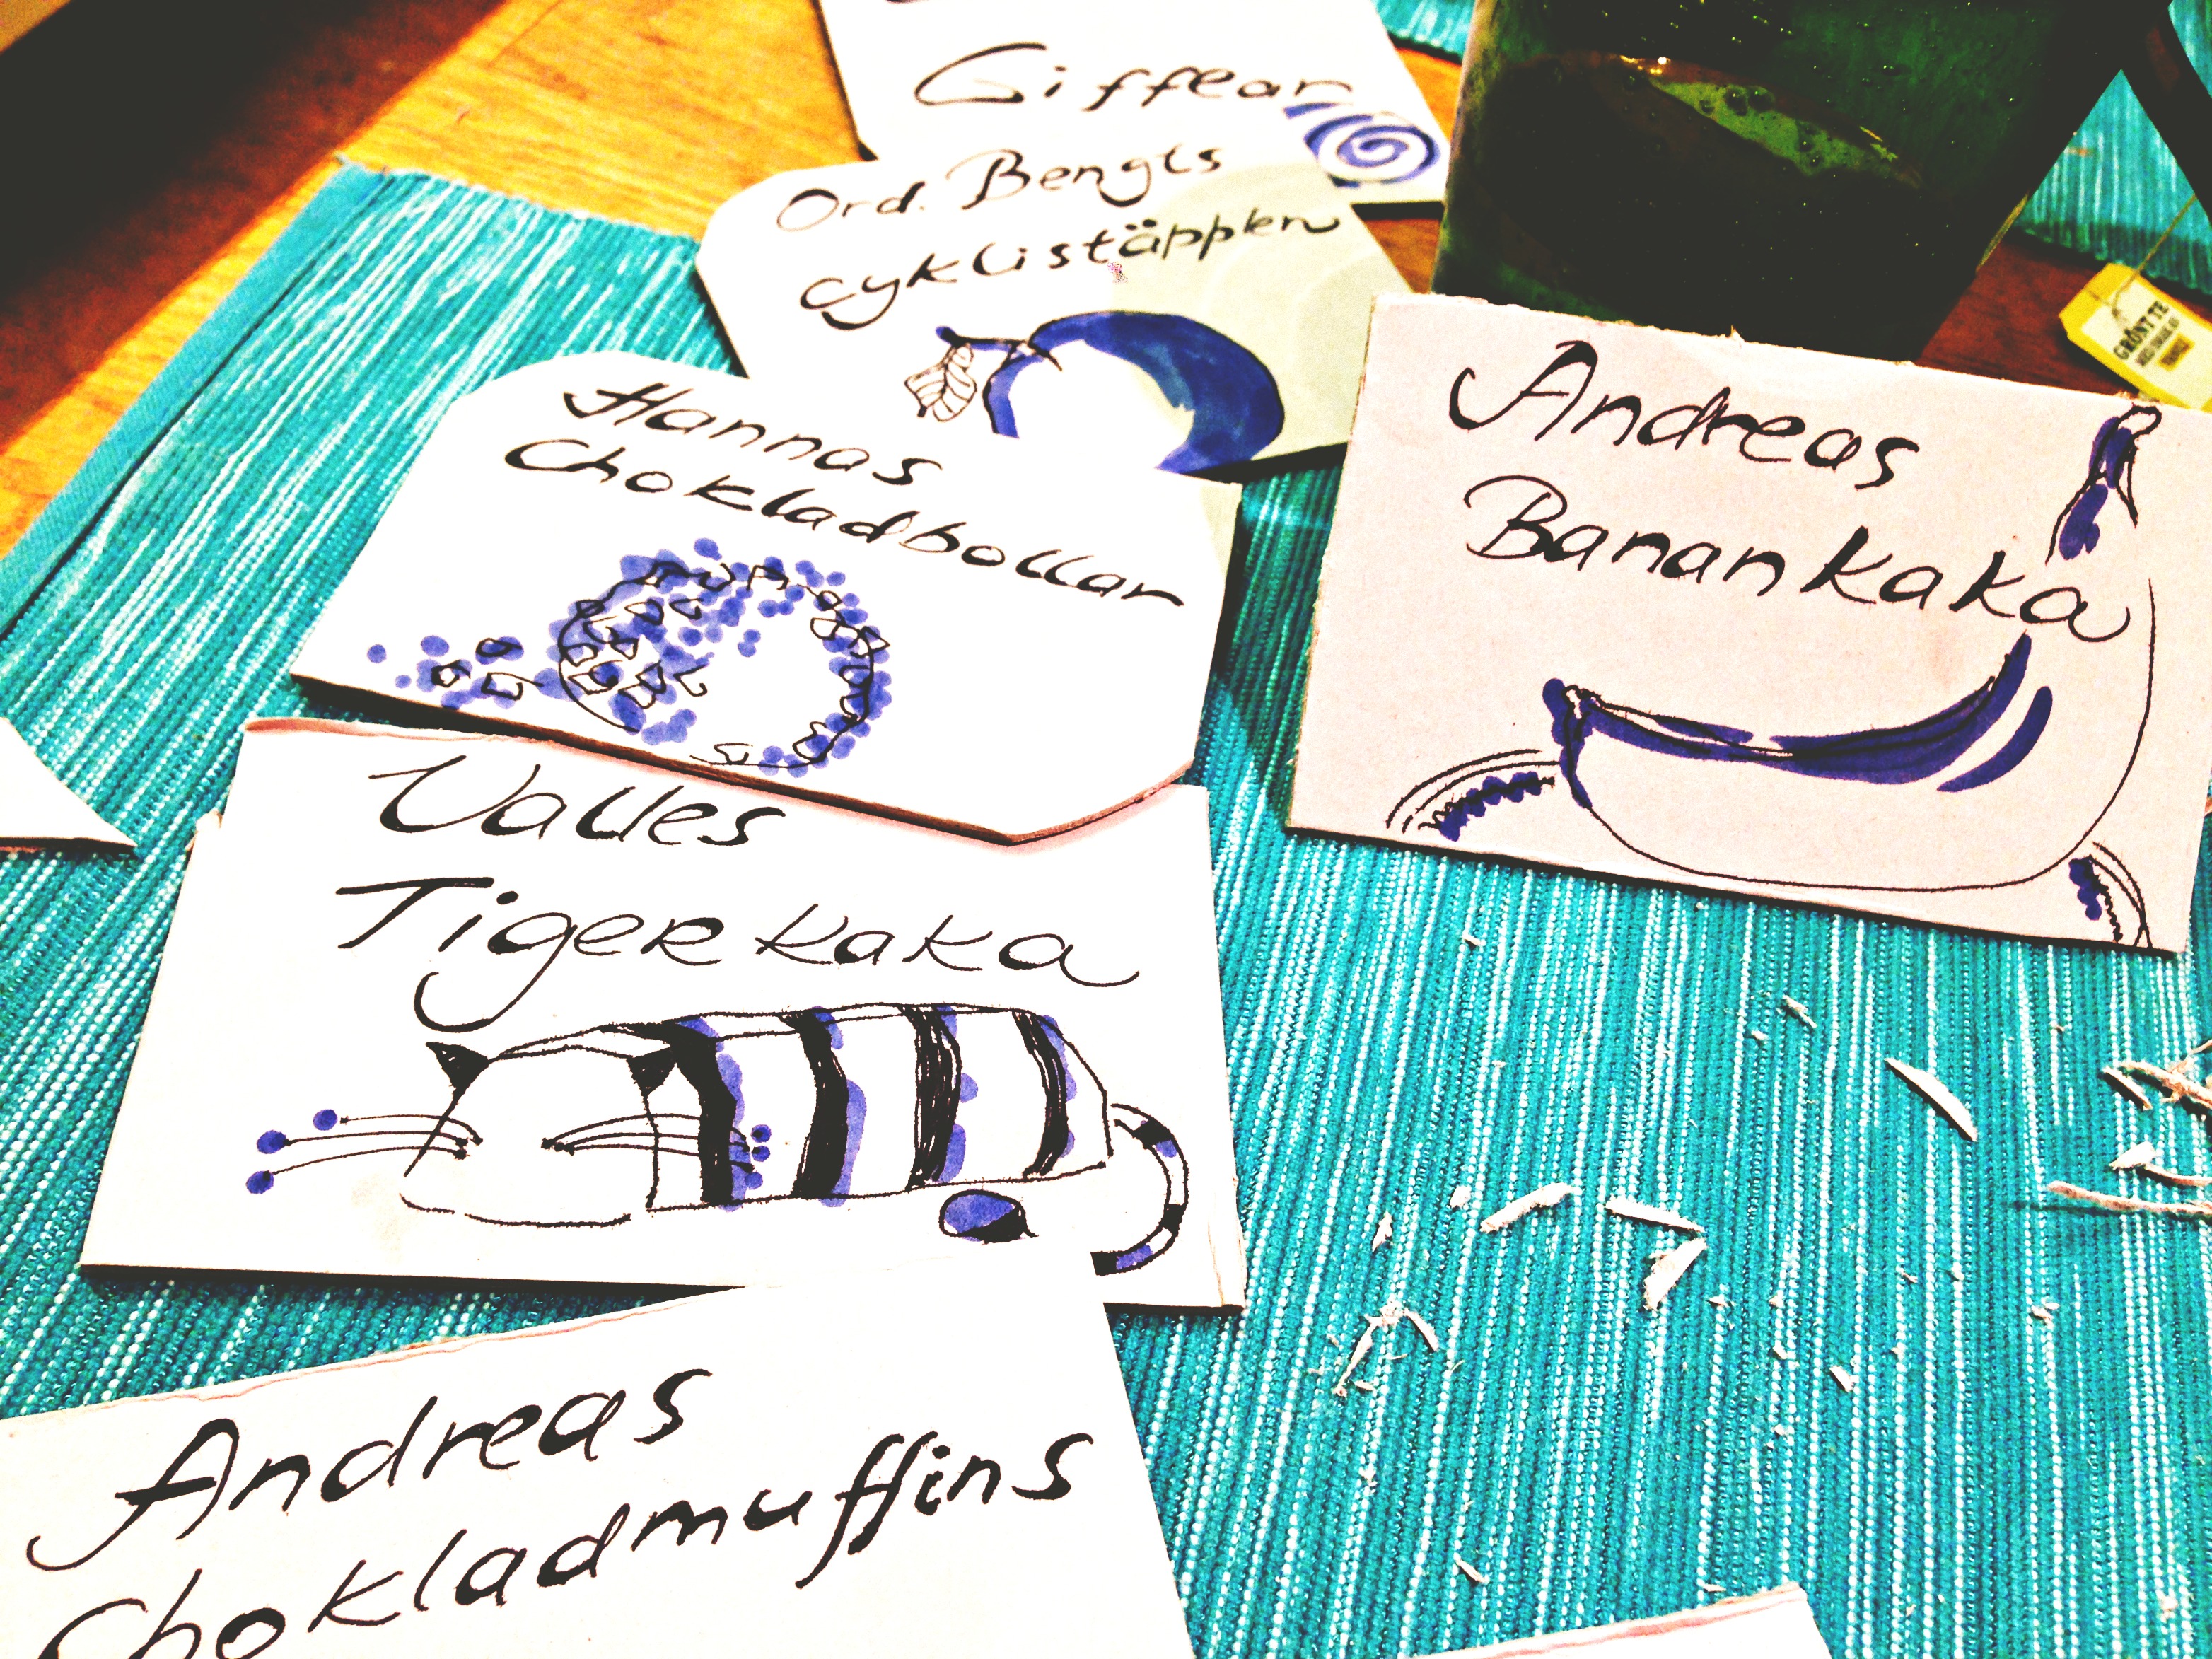 Giffear
Ord. Bengts
cyklistäpplen
Hannas
Chokladbollar
Andreas
Banankaka
Valles
Tigerkaka
Andreas
Chokladmuffins
GRÖNT TE